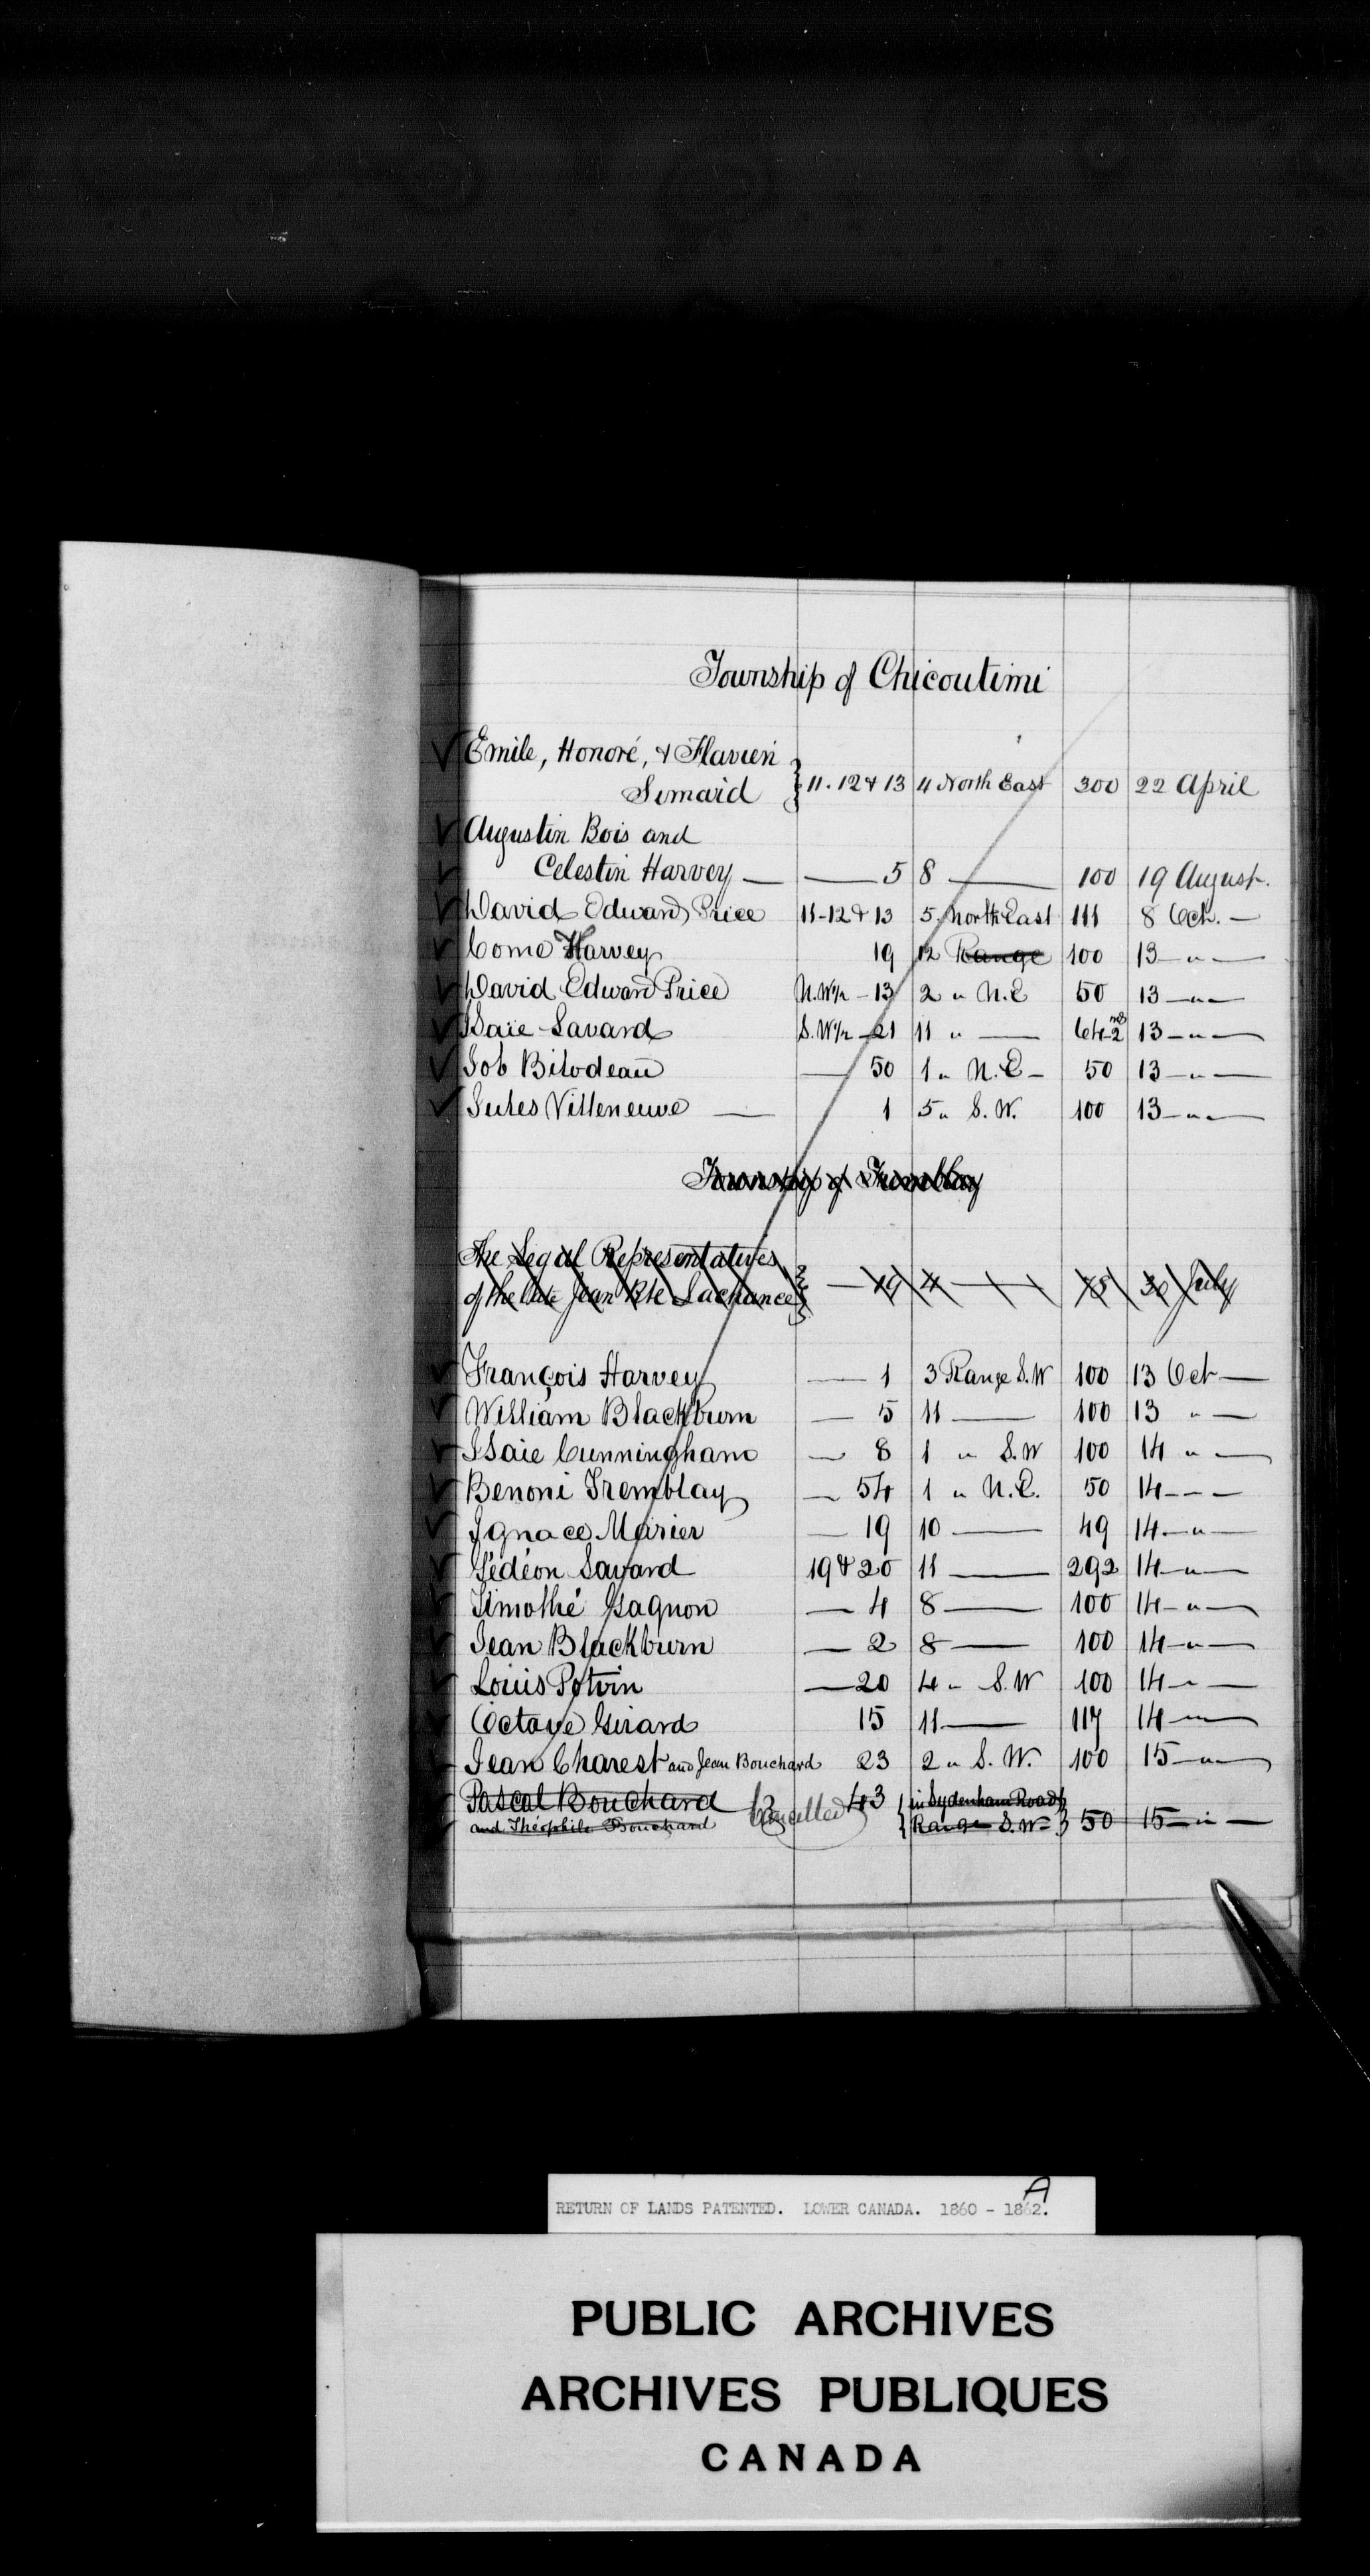 Township of Chicoutimi
Emile, Honoré, & Flavien
Simard } 11. 12 & 13 4 North East 300 22 April
Augustin Bois and
Celestin Harvey — — 5 8 — 100 19 August.
David Edward Price 11-12 & 13 5. North East 111 8 Oct. —
Come Harvey 19 12 Range 100 13 — " —
David Edward Price N.W½ - 13 2 " N.E 50 13 — " —
Isaie Savard S.W½ - 21 11 " — 64-2 13 — " —
Job Bilodeau — 50 1 " N.E — 50 13 — " —
Jules Villeneuve — 1 5 " S.W. 100 13 — " —
Township of Tremblay
The Legal Representatives
of the late Jean Bte Lachance } — 19 4 — 30 July
François Harvey — 1 3 Range S.W 100 13 Oct —
William Blackburn — 5 11 — 100 13 " —
Isaie Cunningham — 8 1 " S.W 100 14 " —
Benoni Tremblay — 54 1 " N.E. 50 14 - - -
Ignace Morier — 19 10 — 49 14 — " —
Gédéon Savard 19 & 20 11 — 292 14 — " —
Timothé Gagnon — 4 8 — 100 14 - " —
Jean Blackburn — 2 8 — 100 14 — " —
Louis Potvin — 20 4 " S.W 100 14 — " —
Octave Girard 15 11 — 117 14 — " —
Jean Charest and Jean Bouchard 23 2 " S.W. 100 15 — " —
Pascal Bouchard Cancelled 43 { in Sydenham Road
and Théophile Bouchard { Range S.W - } 50 15 — " —
RETURN OF LANDS PATENTED. LOWER CANADA. 1860 - 1862. A
PUBLIC ARCHIVES
ARCHIVES PUBLIQUES
CANADA